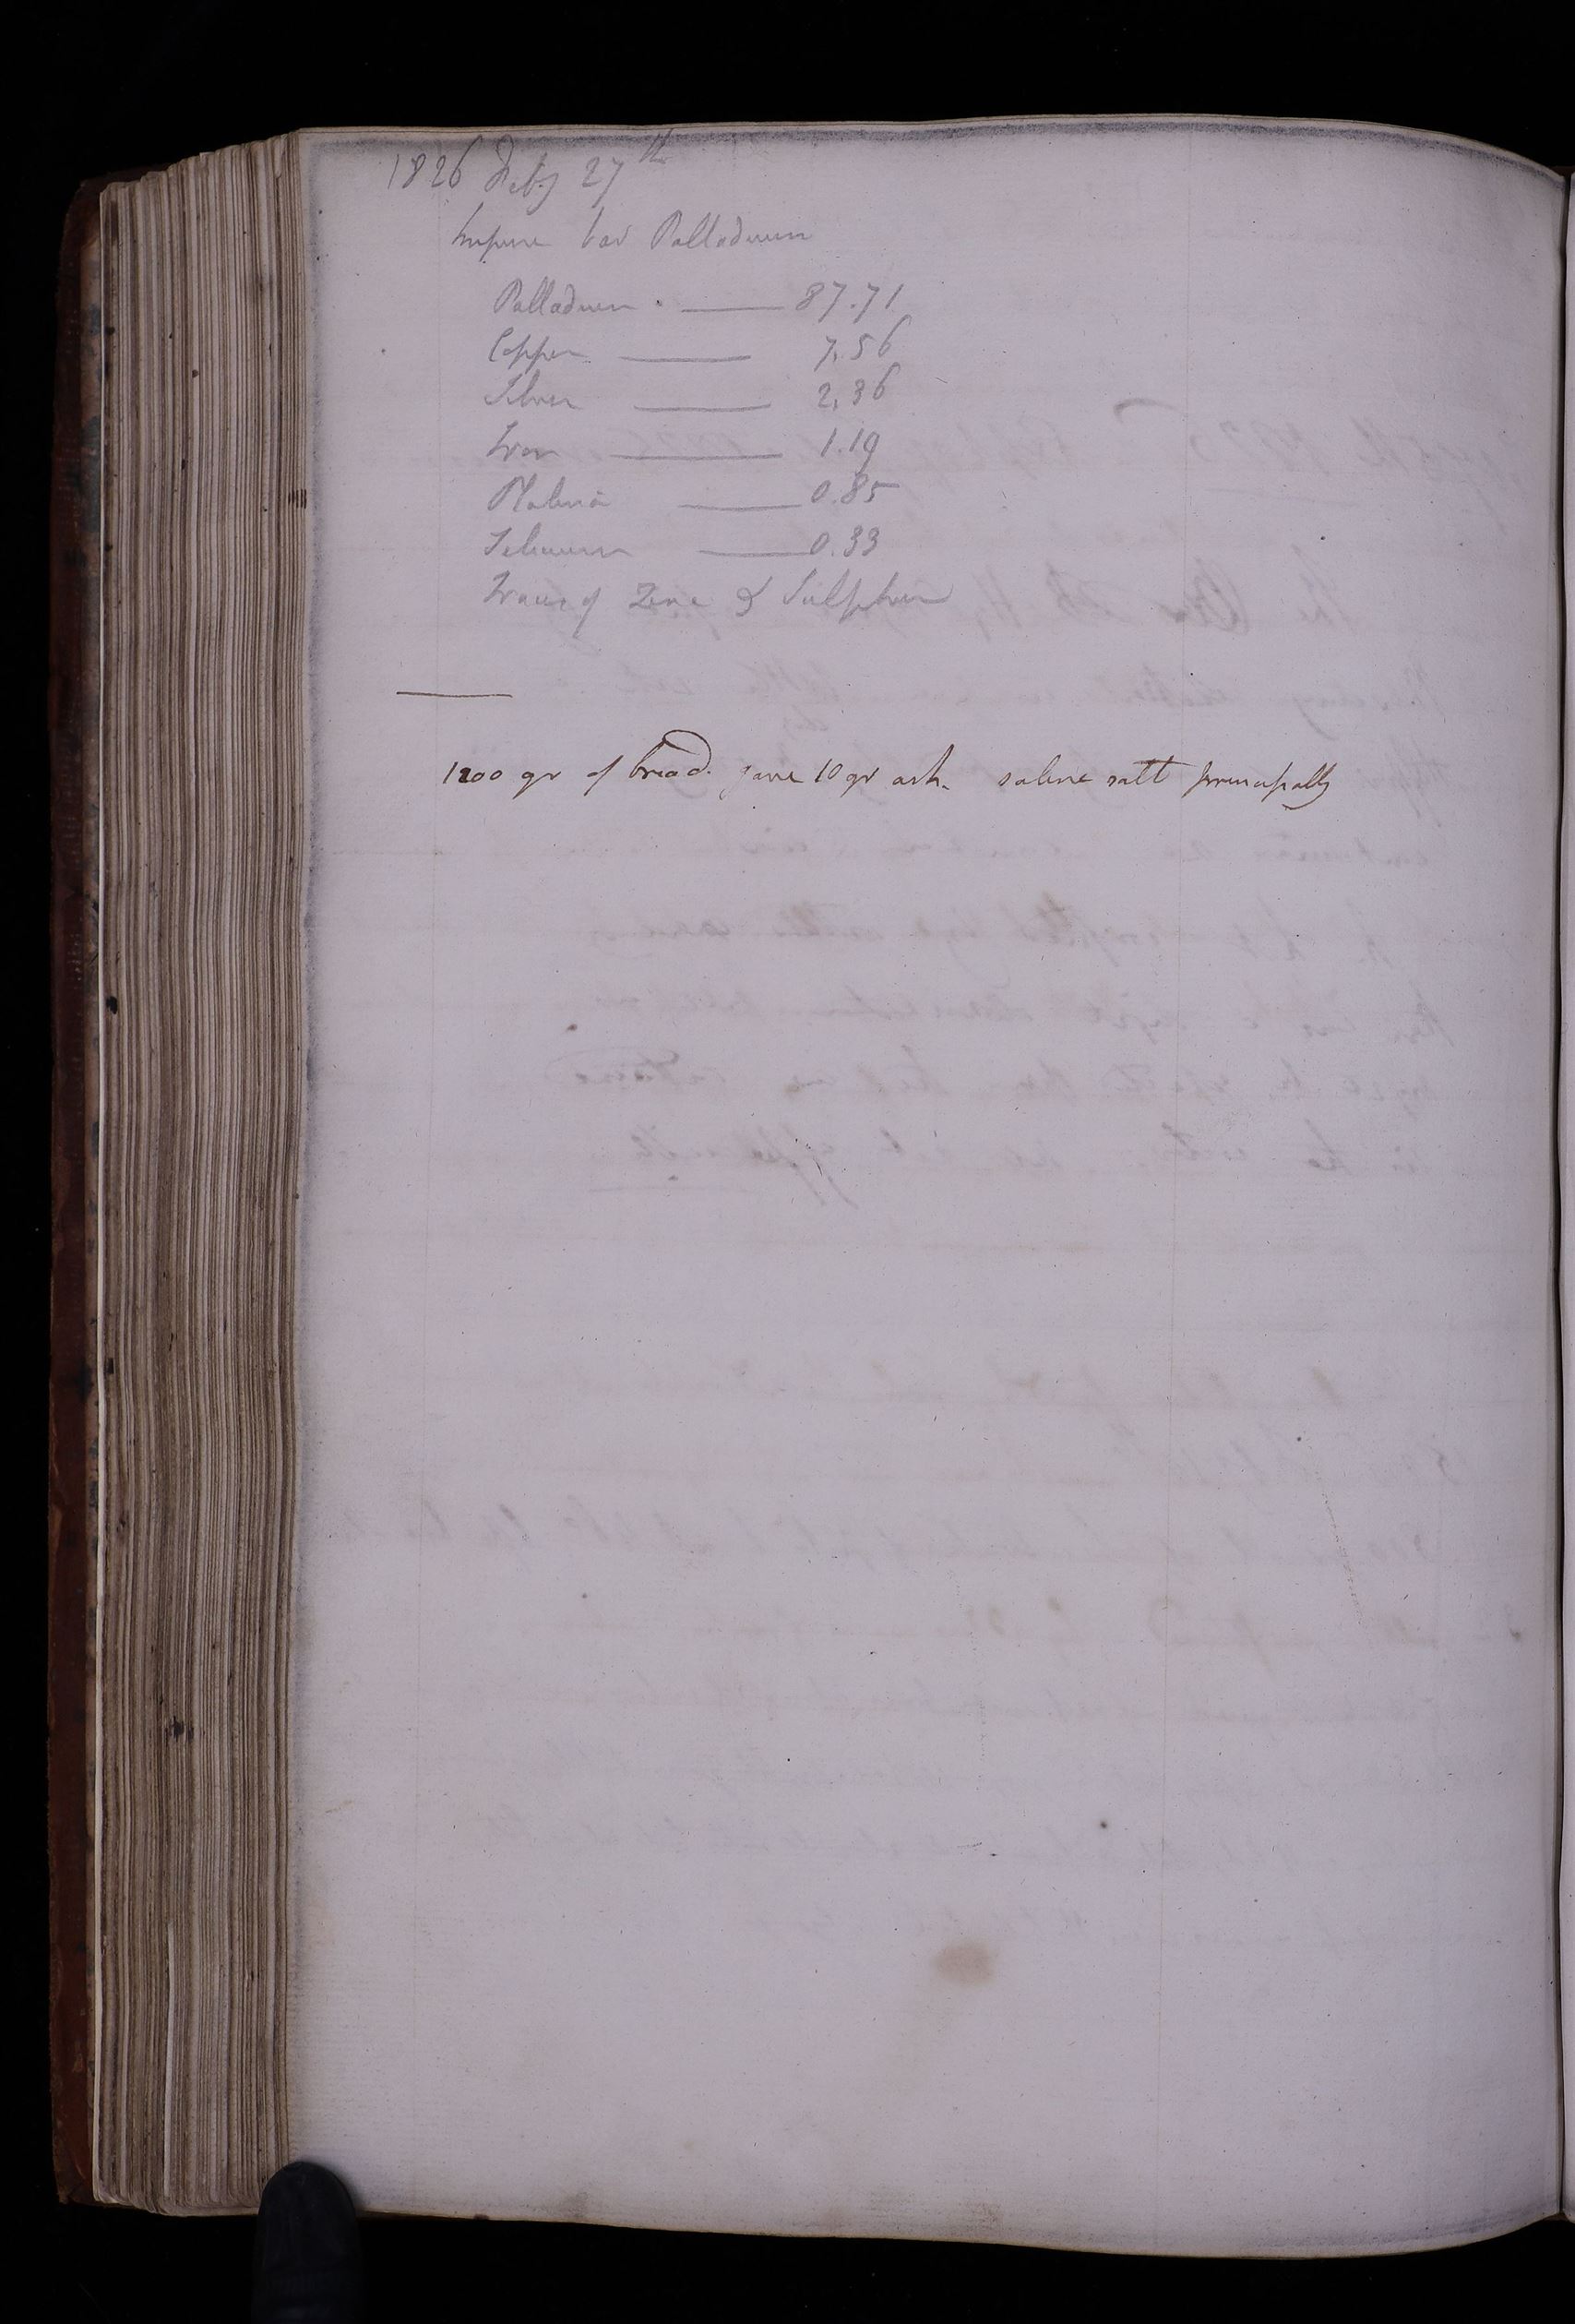 1826 Feby 27th
Impure bar Palladium
Palladium . —— 87.71
Copper —— 7.56
Silver —— 2.36
Iron —— 1.19
Platina —— 0.85
Selenium —— 0.33
Traces of Zinc & Sulphur
1200 gr of bread. gave 10 gr ash. saline salt principally